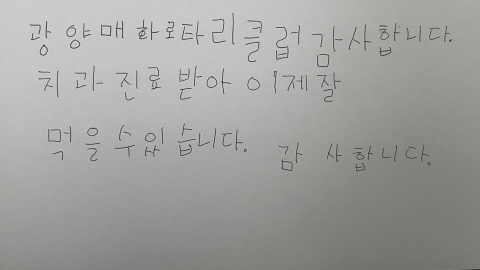 광양매화로타리클럽감사합니다.
치과진료 받아 이제잘
먹을수있습니다. 감사합니다.